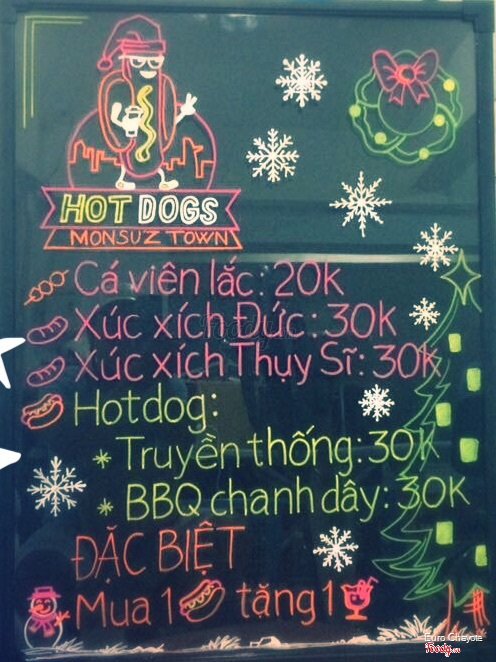 HOT DOGS
MONSUZ TOWN
Cá viên lắc: 20k
Xúc xích Đức: 30K
Xúc xích Thụy Sĩ: 30K
Hotdog:
* Truyền thống: 30K
* BBQ chanh dây: 30K
ĐẶC BIỆT
Mua 1 tặng 1
Euro Chayote
Foody.vn